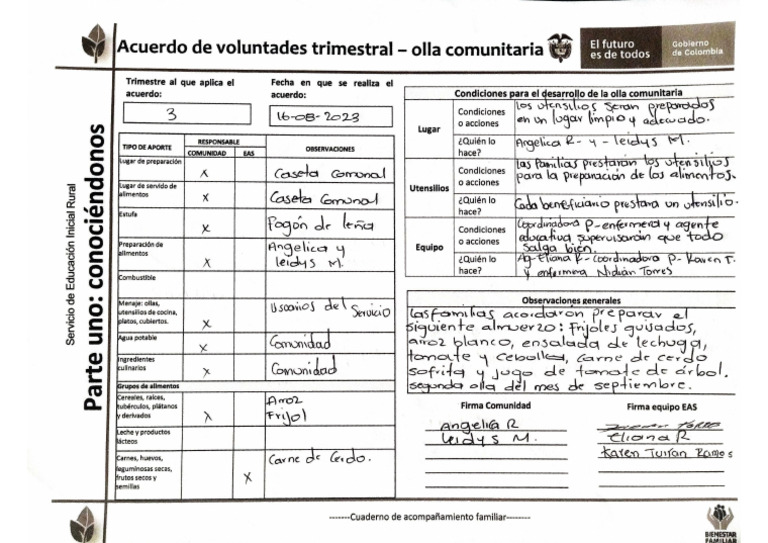 Acuerdo de voluntades trimestral – olla comunitaria
El futuro
es de todos
Gobierno
de Colombia
Servicio de Educación Inicial Rural
Parte uno: conociéndonos
Trimestre al que aplica el
acuerdo:
3
Fecha en que se realiza el
acuerdo:
16-08-2023
TIPO DE APORTE
RESPONSABLE
COMUNIDAD EAS
OBSERVACIONES
Lugar de preparación x Caseta Comunal
Lugar de servicio de
alimentos x Caseta Comunal
Estufa x Fogón de leña
Preparación de
alimentos x Angelica y
leidys M.
Combustible
Menaje: ollas,
utensilios de cocina,
platos, cubiertos. x Usuarios del Servicio
Agua potable x Comunidad
Ingredientes
culinarios x Comunidad
Grupos de alimentos
Cereales, raíces,
tubérculos, plátanos
y derivados x Arroz
Frijol
Leche y productos
lácteos
Carnes, huevos,
leguminosas secas,
frutos secos y
semillas x Carne de Cerdo.
Condiciones para el desarrollo de la olla comunitaria
Lugar
Condiciones
o acciones
los utensilios seran preparados
en un lugar limpio y adecuado.
¿Quién lo
hace?
Angelica R- y - leidys M.
Utensilios
Condiciones
o acciones
las familias prestaran los utensilios
para la preparación de los alimentos.
¿Quién lo
hace?
Cada beneficiario prestara un utensilio.
Equipo
Condiciones
o acciones
Coordinadora P-enfermera y agente
educativa supervisaran que todo
salga bien.
¿Quién lo
hace?
Ag-Eliana R-Coordinadora P- Karen T.
y enfermera Nidian Torres
Observaciones generales
las familias acordaron preparar el
siguiente almuerzo: Frijoles guisados,
arroz blanco, ensalada de lechuga,
tomate y cebolla, carne de cerdo
sofrita y jugo de tomate de árbol.
segunda olla del mes de septiembre.
Firma Comunidad
Angelica R
leidys M.
Firma equipo EAS
Eliana R
Karen Tuiran Ramos
-------Cuaderno de acompañamiento familiar--------
BIENESTAR
FAMILIAR